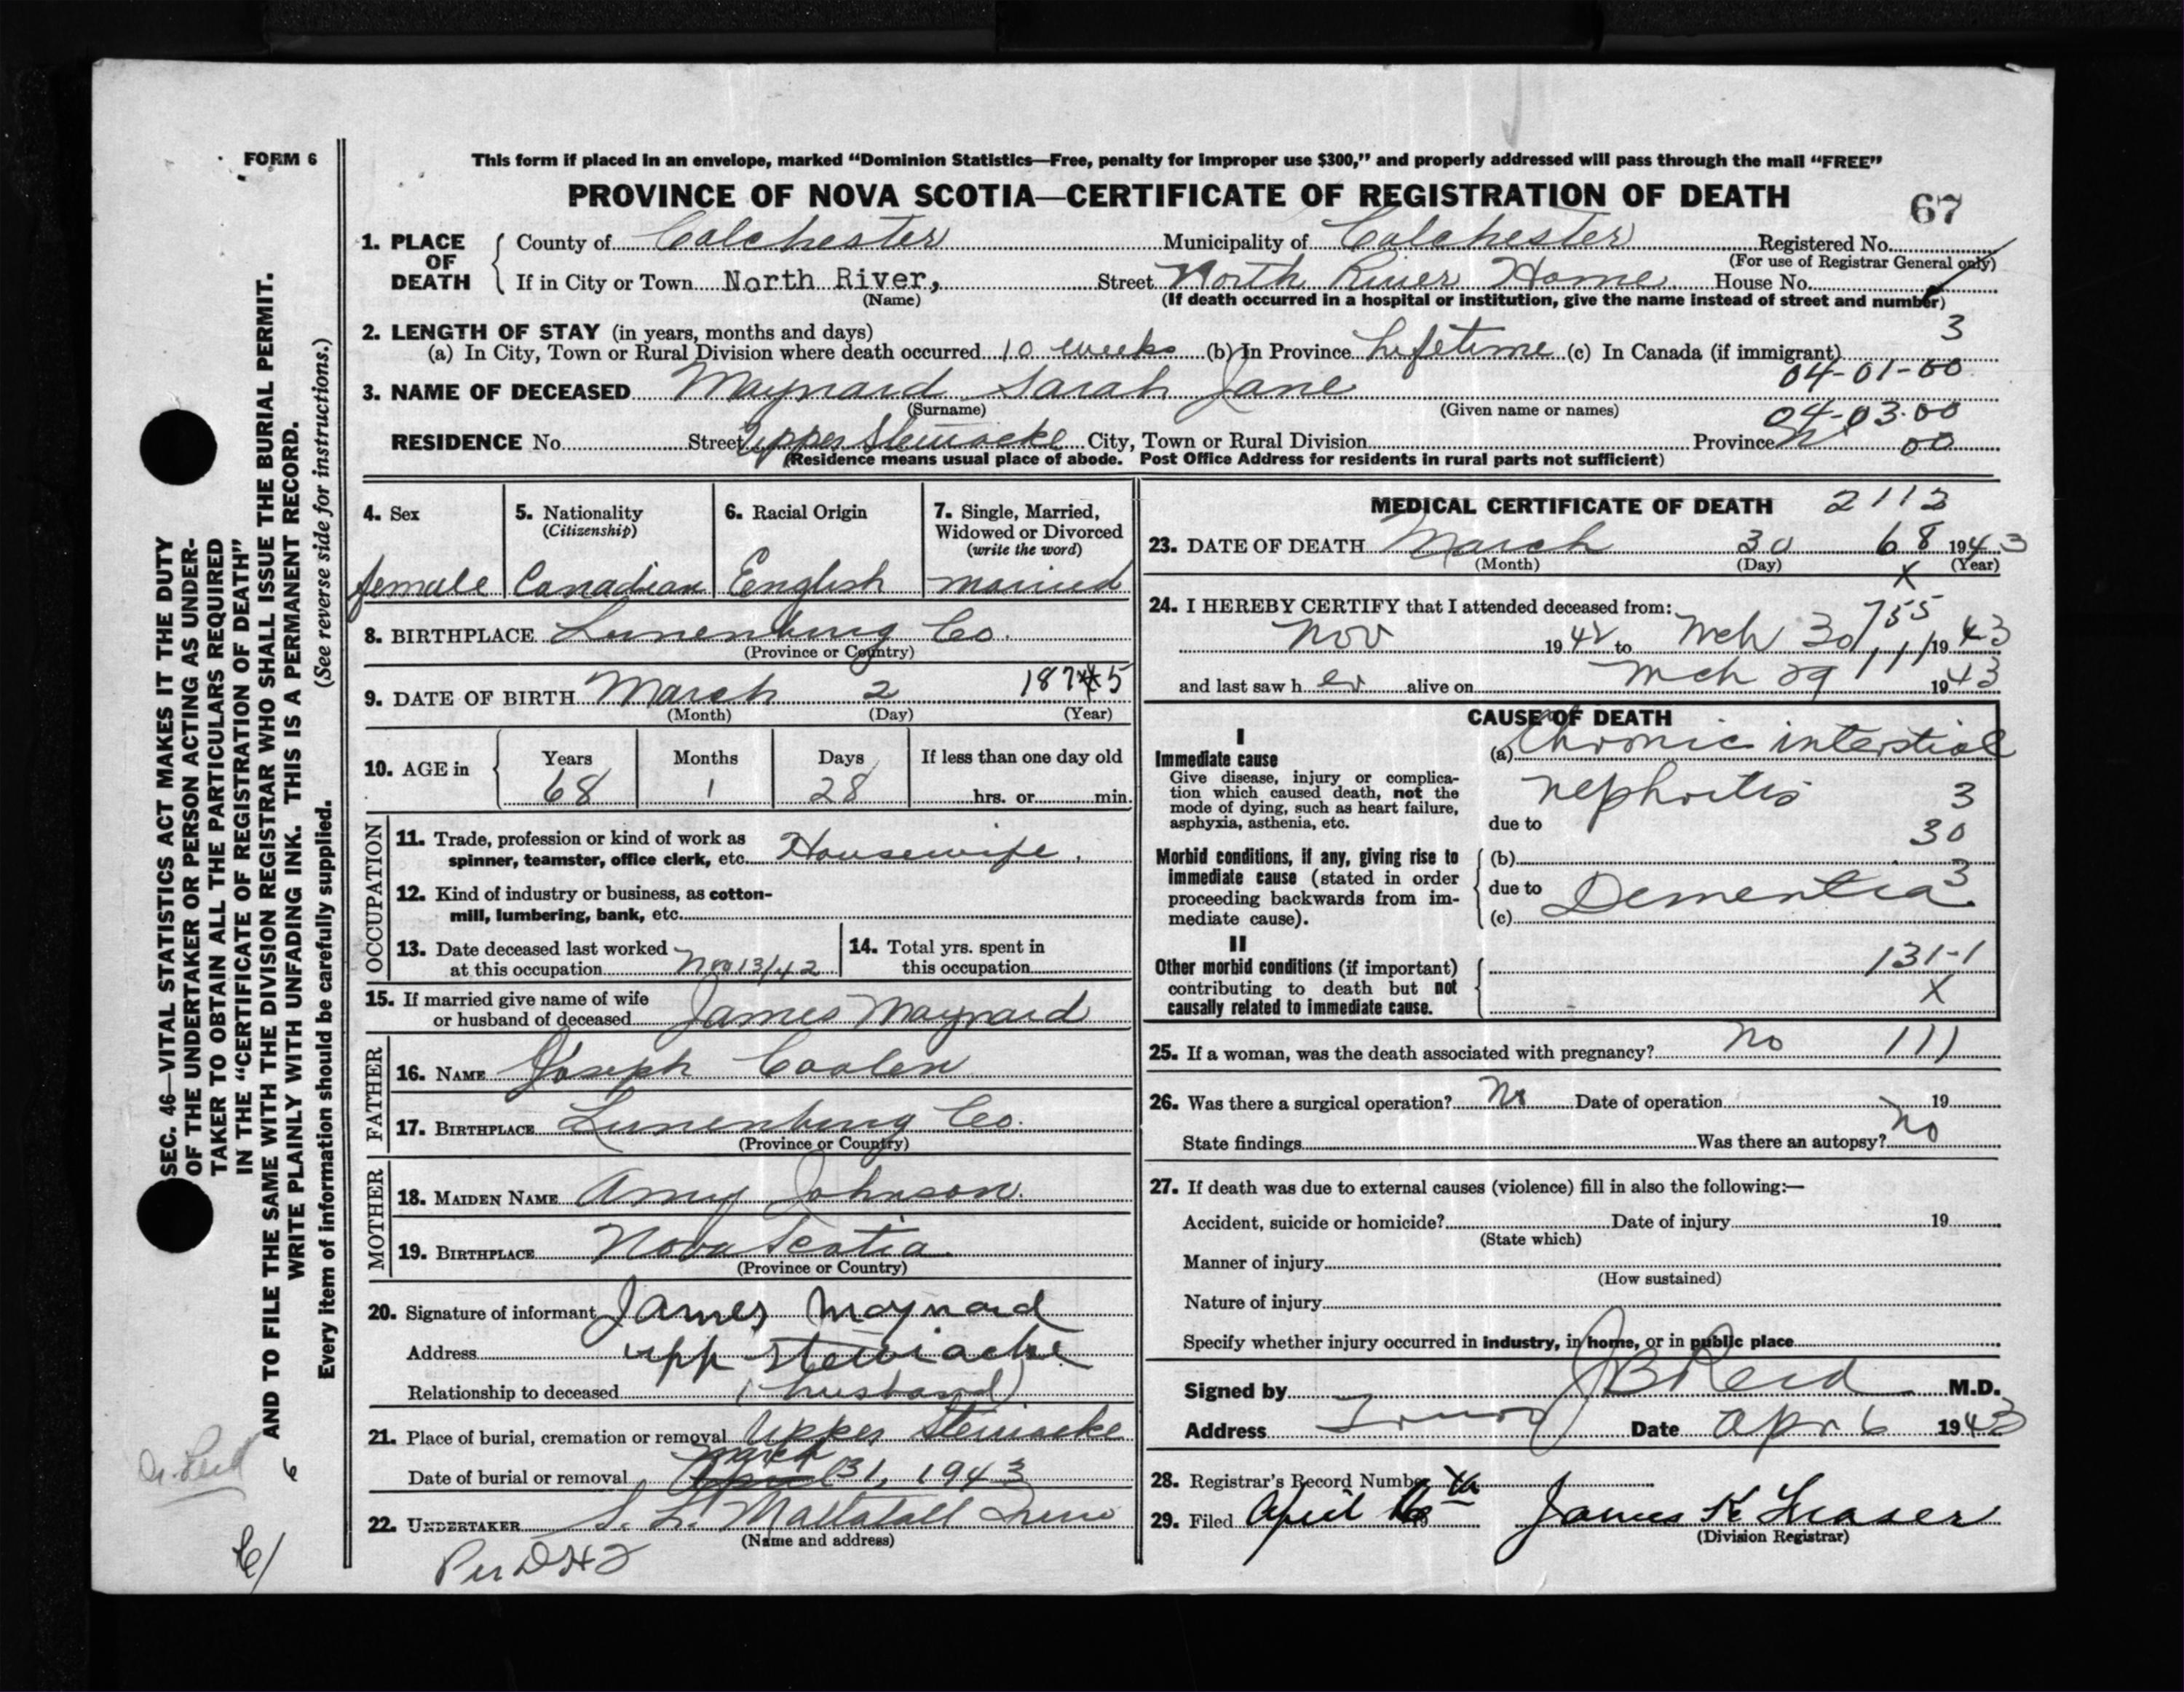 FORM 6
This form if placed in an envelope, marked “Dominion Statistics—Free, penalty for improper use $300,” and properly addressed will pass through the mail “FREE”
PROVINCE OF NOVA SCOTIA—CERTIFICATE OF REGISTRATION OF DEATH
67
1. PLACE OF DEATH County of Colchester Municipality of Colchester Registered No.
(For use of Registrar General only)
If in City or Town North River, Street North River Home House No.
(Name) (If death occurred in a hospital or institution, give the name instead of street and number)
2. LENGTH OF STAY (in years, months and days) 3
(a) In City, Town or Rural Division where death occurred 10 weeks (b) In Province Lifetime (c) In Canada (if immigrant)
04-01-00
3. NAME OF DECEASED Maynard Sarah Jane
(Surname) (Given name or names) 04-03-00
RESIDENCE No. Street Upper Stewiacke City, Town or Rural Division Province N 00
(Residence means usual place of abode. Post Office Address for residents in rural parts not sufficient)
4. Sex
female
5. Nationality
(Citizenship)
Canadian
6. Racial Origin
English
7. Single, Married,
Widowed or Divorced
(write the word)
married
8. BIRTHPLACE Lunenburg Co.
(Province or Country)
9. DATE OF BIRTH March 2 1874 5
(Month) (Day) (Year)
10. AGE in Years Months Days If less than one day old
68 1 28 hrs. or min.
OCCUPATION
11. Trade, profession or kind of work as
spinner, teamster, office clerk, etc. Housewife.
12. Kind of industry or business, as cotton-
mill, lumbering, bank, etc.
13. Date deceased last worked
at this occupation Nov 13/42
14. Total yrs. spent in
this occupation
15. If married give name of wife
or husband of deceased James Maynard
FATHER
16. NAME Joseph Coolen
17. BIRTHPLACE Lunenburg Co.
(Province or Country)
MOTHER
18. MAIDEN NAME Amy Johnson.
19. BIRTHPLACE Nova Scotia
(Province or Country)
20. Signature of informant James Maynard
Address upp stewiacke
Relationship to deceased (husband)
21. Place of burial, cremation or removal Upper Stewiacke
March
Date of burial or removal April 31, 1943
22. UNDERTAKER S. L. Mattatall Truro
(Name and address)
MEDICAL CERTIFICATE OF DEATH 2112
23. DATE OF DEATH March 30 68 1943
(Month) (Day) X (Year)
24. I HEREBY CERTIFY that I attended deceased from: 755
Nov 1942 to Mch 30 1943
111
and last saw h er alive on Mch 29 1943
CAUSE OF DEATH
I
Immediate cause
Give disease, injury or complica-
tion which caused death, not the
mode of dying, such as heart failure,
asphyxia, asthenia, etc.
(a) Chronic interstial
nephritis 3
due to
30
Morbid conditions, if any, giving rise to
immediate cause (stated in order
proceeding backwards from im-
mediate cause).
(b)
3
due to Dementia
(c)
II
Other morbid conditions (if important)
contributing to death but not
causally related to immediate cause.
131-1
X
25. If a woman, was the death associated with pregnancy? No 111
26. Was there a surgical operation? No Date of operation 19
State findings Was there an autopsy? No
27. If death was due to external causes (violence) fill in also the following:—
Accident, suicide or homicide? Date of injury 19
(State which)
Manner of injury
(How sustained)
Nature of injury
Specify whether injury occurred in industry, in home, or in public place
Signed by J B Reid M.D.
Address Truro Date Apr 6 1943
28. Registrar's Record Number
29. Filed April 6th 19 James K Fraser
(Division Registrar)
SEC. 46—VITAL STATISTICS ACT MAKES IT THE DUTY
OF THE UNDERTAKER OR PERSON ACTING AS UNDER-
TAKER TO OBTAIN ALL THE PARTICULARS REQUIRED
IN THE “CERTIFICATE OF REGISTRATION OF DEATH”
AND TO FILE THE SAME WITH THE DIVISION REGISTRAR WHO SHALL ISSUE THE BURIAL PERMIT.
WRITE PLAINLY WITH UNFADING INK. THIS IS A PERMANENT RECORD.
Every item of information should be carefully supplied. (See reverse side for instructions.)